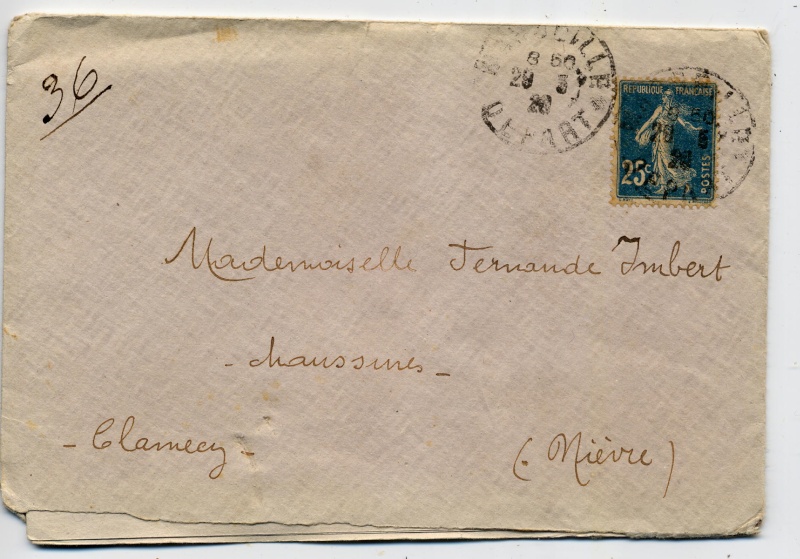 36
8 50
29 5
20
DEPART
REPUBLIQUE FRANÇAISE
25c
POSTES
Mademoiselle Fernande Imbert
- Chaussures -
- Clamecy -
(Nièvre)